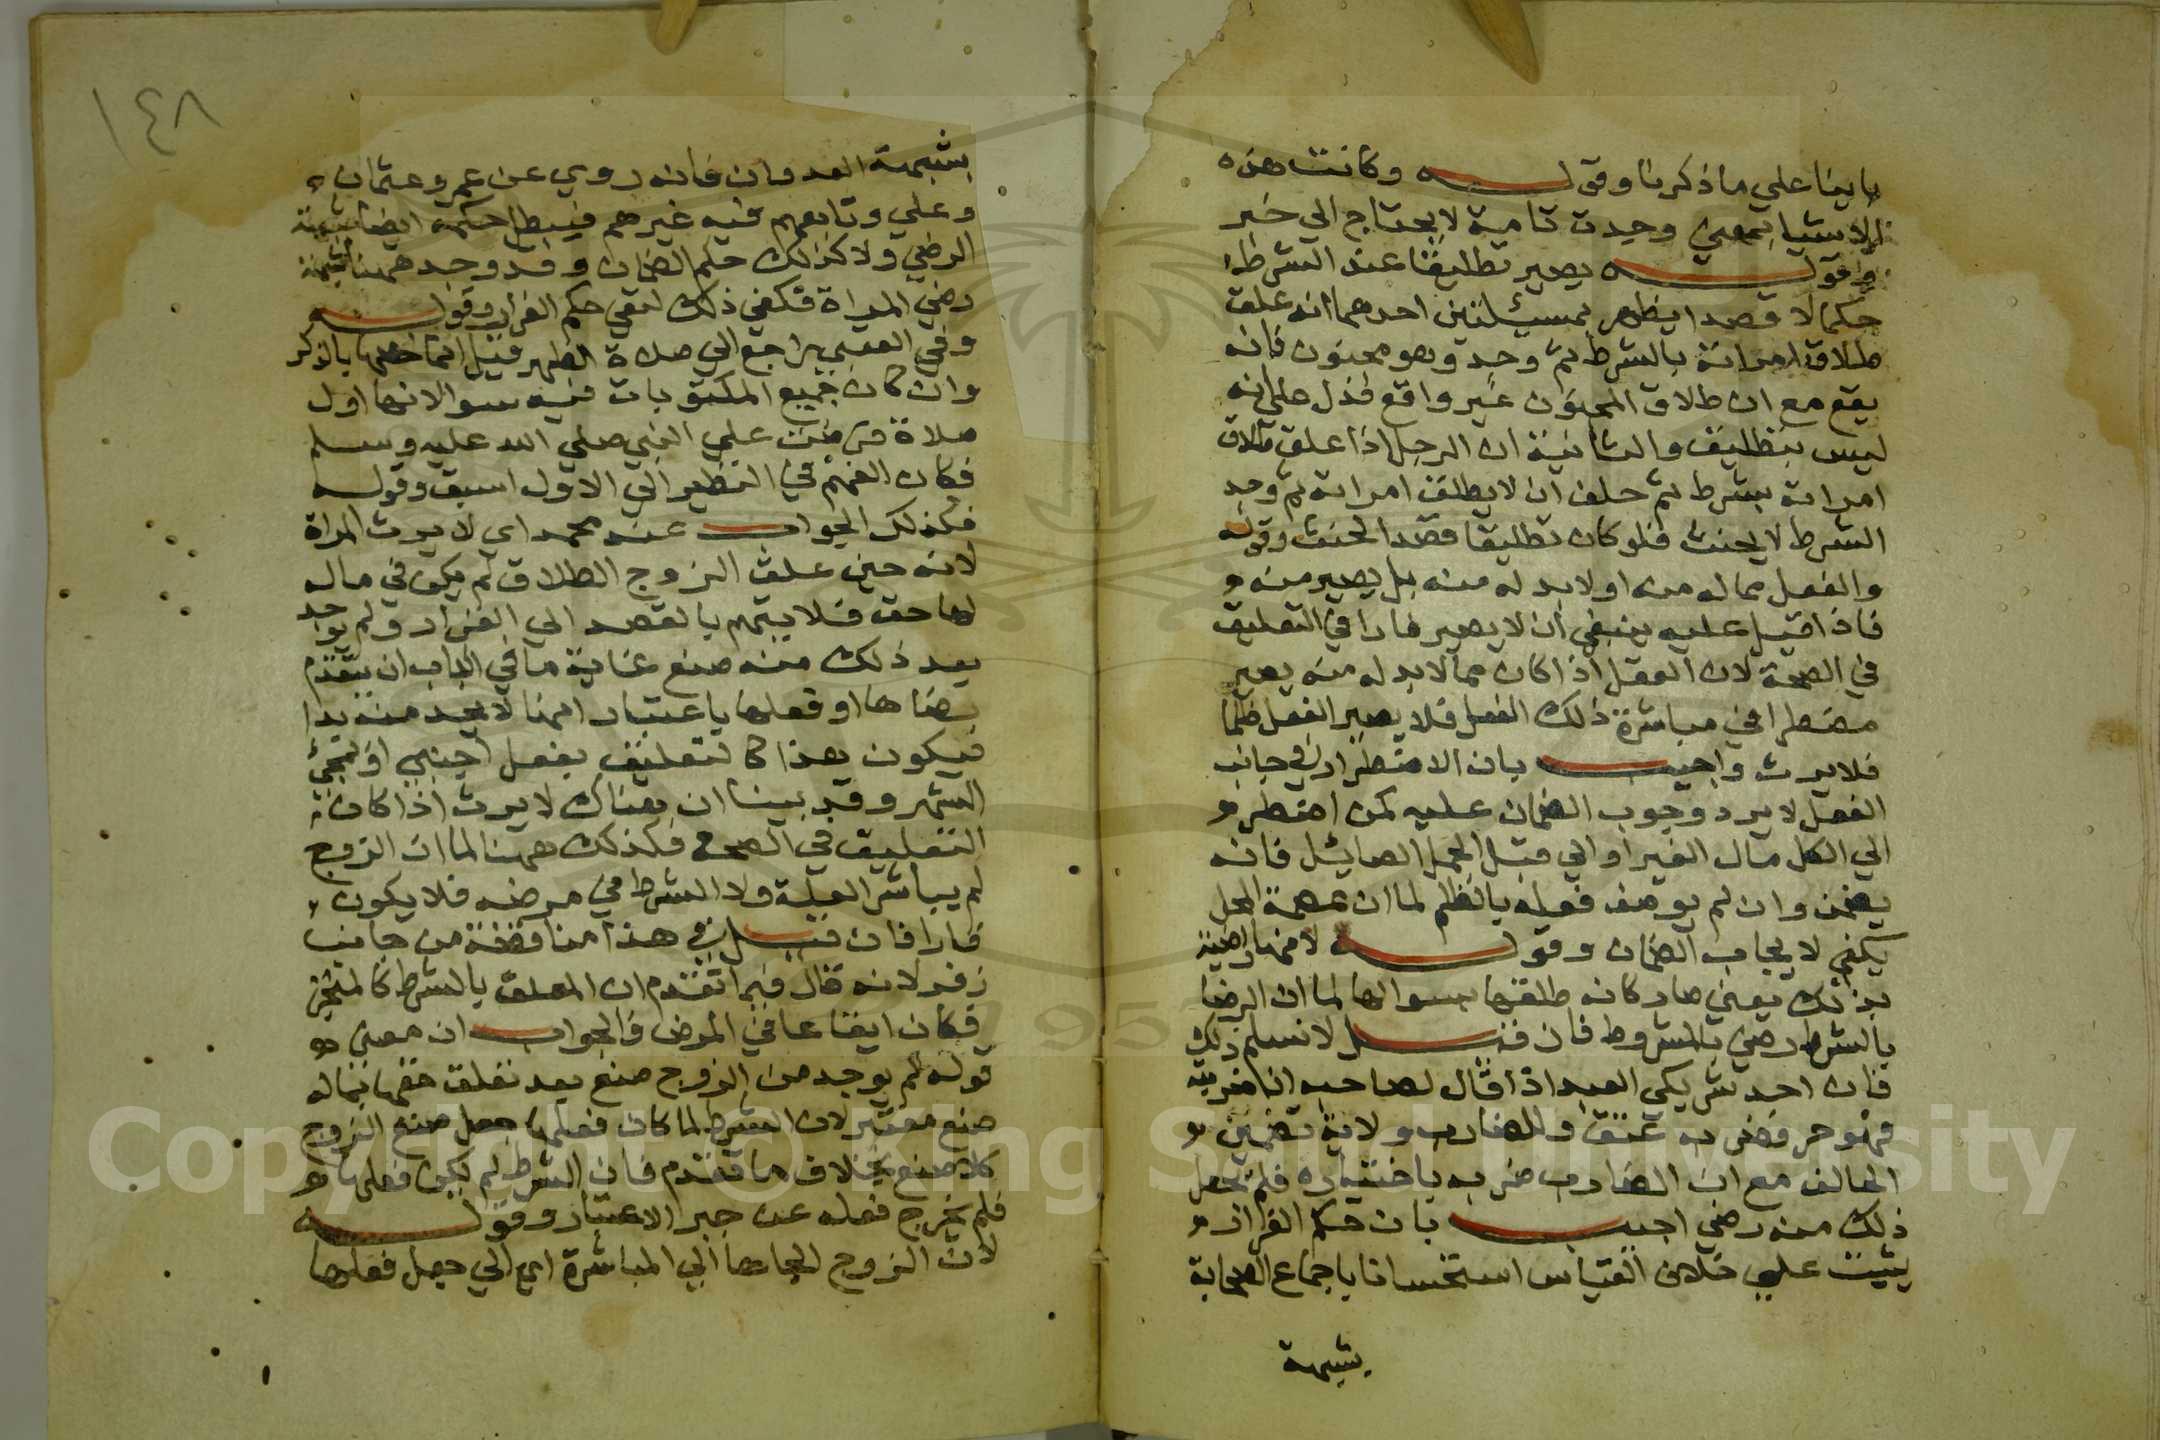 بابنا علي ما ذكرنا وقوله وكانت هذه
الاشيا بمعني وجدت تامة لا يحتاج الي خبر
وقوله يصير تطليقا عند الشرط
حكما لا قصدا يظهر بمسئلتين احدهما انه علق
طلاق امراته بالشرط ثم وجد وهو مجنون فانه
يقع مع ان طلاق المجنون غير واقع فدل علي انه
ليس بتطليق والثانية ان الرجل اذا علق طلاق
امراته بشرط ثم حلف ان لا يطلق امراته ثم وجد
الشرط لا يحنث فلو كان تطليقا قصدا لحنث وقوله
والفعل مما له منه او لا بد له منه بل يصير منه
فاذا قيل عليه ينبغي ان لا يصير فارا في التعليق
في الصحة لان الفعل اذا كان مما لا بد له منه يصير
مضطرا في مباشرة ذلك الفعل فلا يصير الفعل ظلما
فلا يرث واجيب بان الاضطرار في جانب
الفعل لا يرد وجوب الضمان عليه كمن اضطر
الي اكل مال الغير او الي قتل الجمل الصايل فانه
يضمن وان لم يوصف فعله بالظلم لما ان عصمة المحل
يكفي لايجاب الضمان وقوله لانها راضية
بذلك يعني صار كانه طلقها بسوالها لما ان الرضا
بالشرط رضي بالمشروط فان قيل لا نسلم ذلك
فان احد شريكي العبد اذا قال لصاحبه ان ضربته
فهو حر فضربه عتق وللضارب ولاية تضمين
الحالف مع ان الضارب ضربه باختياره فلم يجعل
ذلك منه رضي اجيب بان حكم الفرار
يثبت علي خلاف القياس استحسانا باجماع الصحابة
بشبهة
١٤٨
بشبهة العدوان فانه روي عن عمر وعثمان
وعلي وتابعهم فيه غيرهم فيبطل حكمه ايضا بشبهة
الرضي ولا كذلك حكم الضمان وقد وجد ههنا شبهة
رضي المراة فكفي ذلك لنفي حكم الفرار وقوله
وفي العيني يراجع الي صلاة الظهر قيل انما خصها بالذكر
وان كان جميع المكتوبات فيه سوا لانها اول
صلاة فرضت علي النبي صلي الله عليه وسلم
فكان الفهم في التنظير الي الاول اسبق وقوله
فكذلك الجواب عند محمد اي لا يرث المراة
لانه حين علق الزوج الطلاق لم يكن في ماله
لها حق فلا يتهم بالقصد الي الفرار ولم يوجد
بعد ذلك منه صنع غاية ما في الباب ان ينعدم
رضاها او فعلها باعتبار انها لا تجد منه بدا
فيكون هذا كالتعليق بفعل اجنبي او بمجيئ
الشهر وقد بينا ان هناك لا يرث اذا كان
التعليق في الصحة فكذلك ههنا لما ان الزوج
لم يباشر العلة ولا الشرط في مرضه فلا يكون
فارا فان قيل في هذا مناقضة من جانب
زفر لانه قال فيما تقدم ان المعلق بالشرط كالمنجز
فكان ايقاعا في المرض فالجواب ان معني
قوله لم يوجد من الزوج صنع بعد تعلق حقها بماله
صنع معتبر لان الشرط لما كان فعلها جعل صنع الزوج
كلا صنع بخلاف ما تقدم فان الشرط لم يكن فعلها
فلم يخرج فعله عن حيز الاعتبار وقوله
لان الزوج الجاها الي المباشرة اي الي جعل فعلها
Copyright © King Saud University
1957